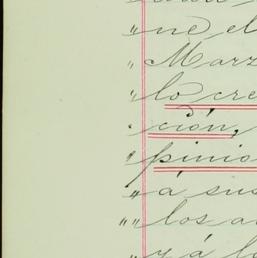 „ ne el
„ Marz
„ lo cre
„ ción,
„ pinio
„ á sus
„ los a
„ y á lo